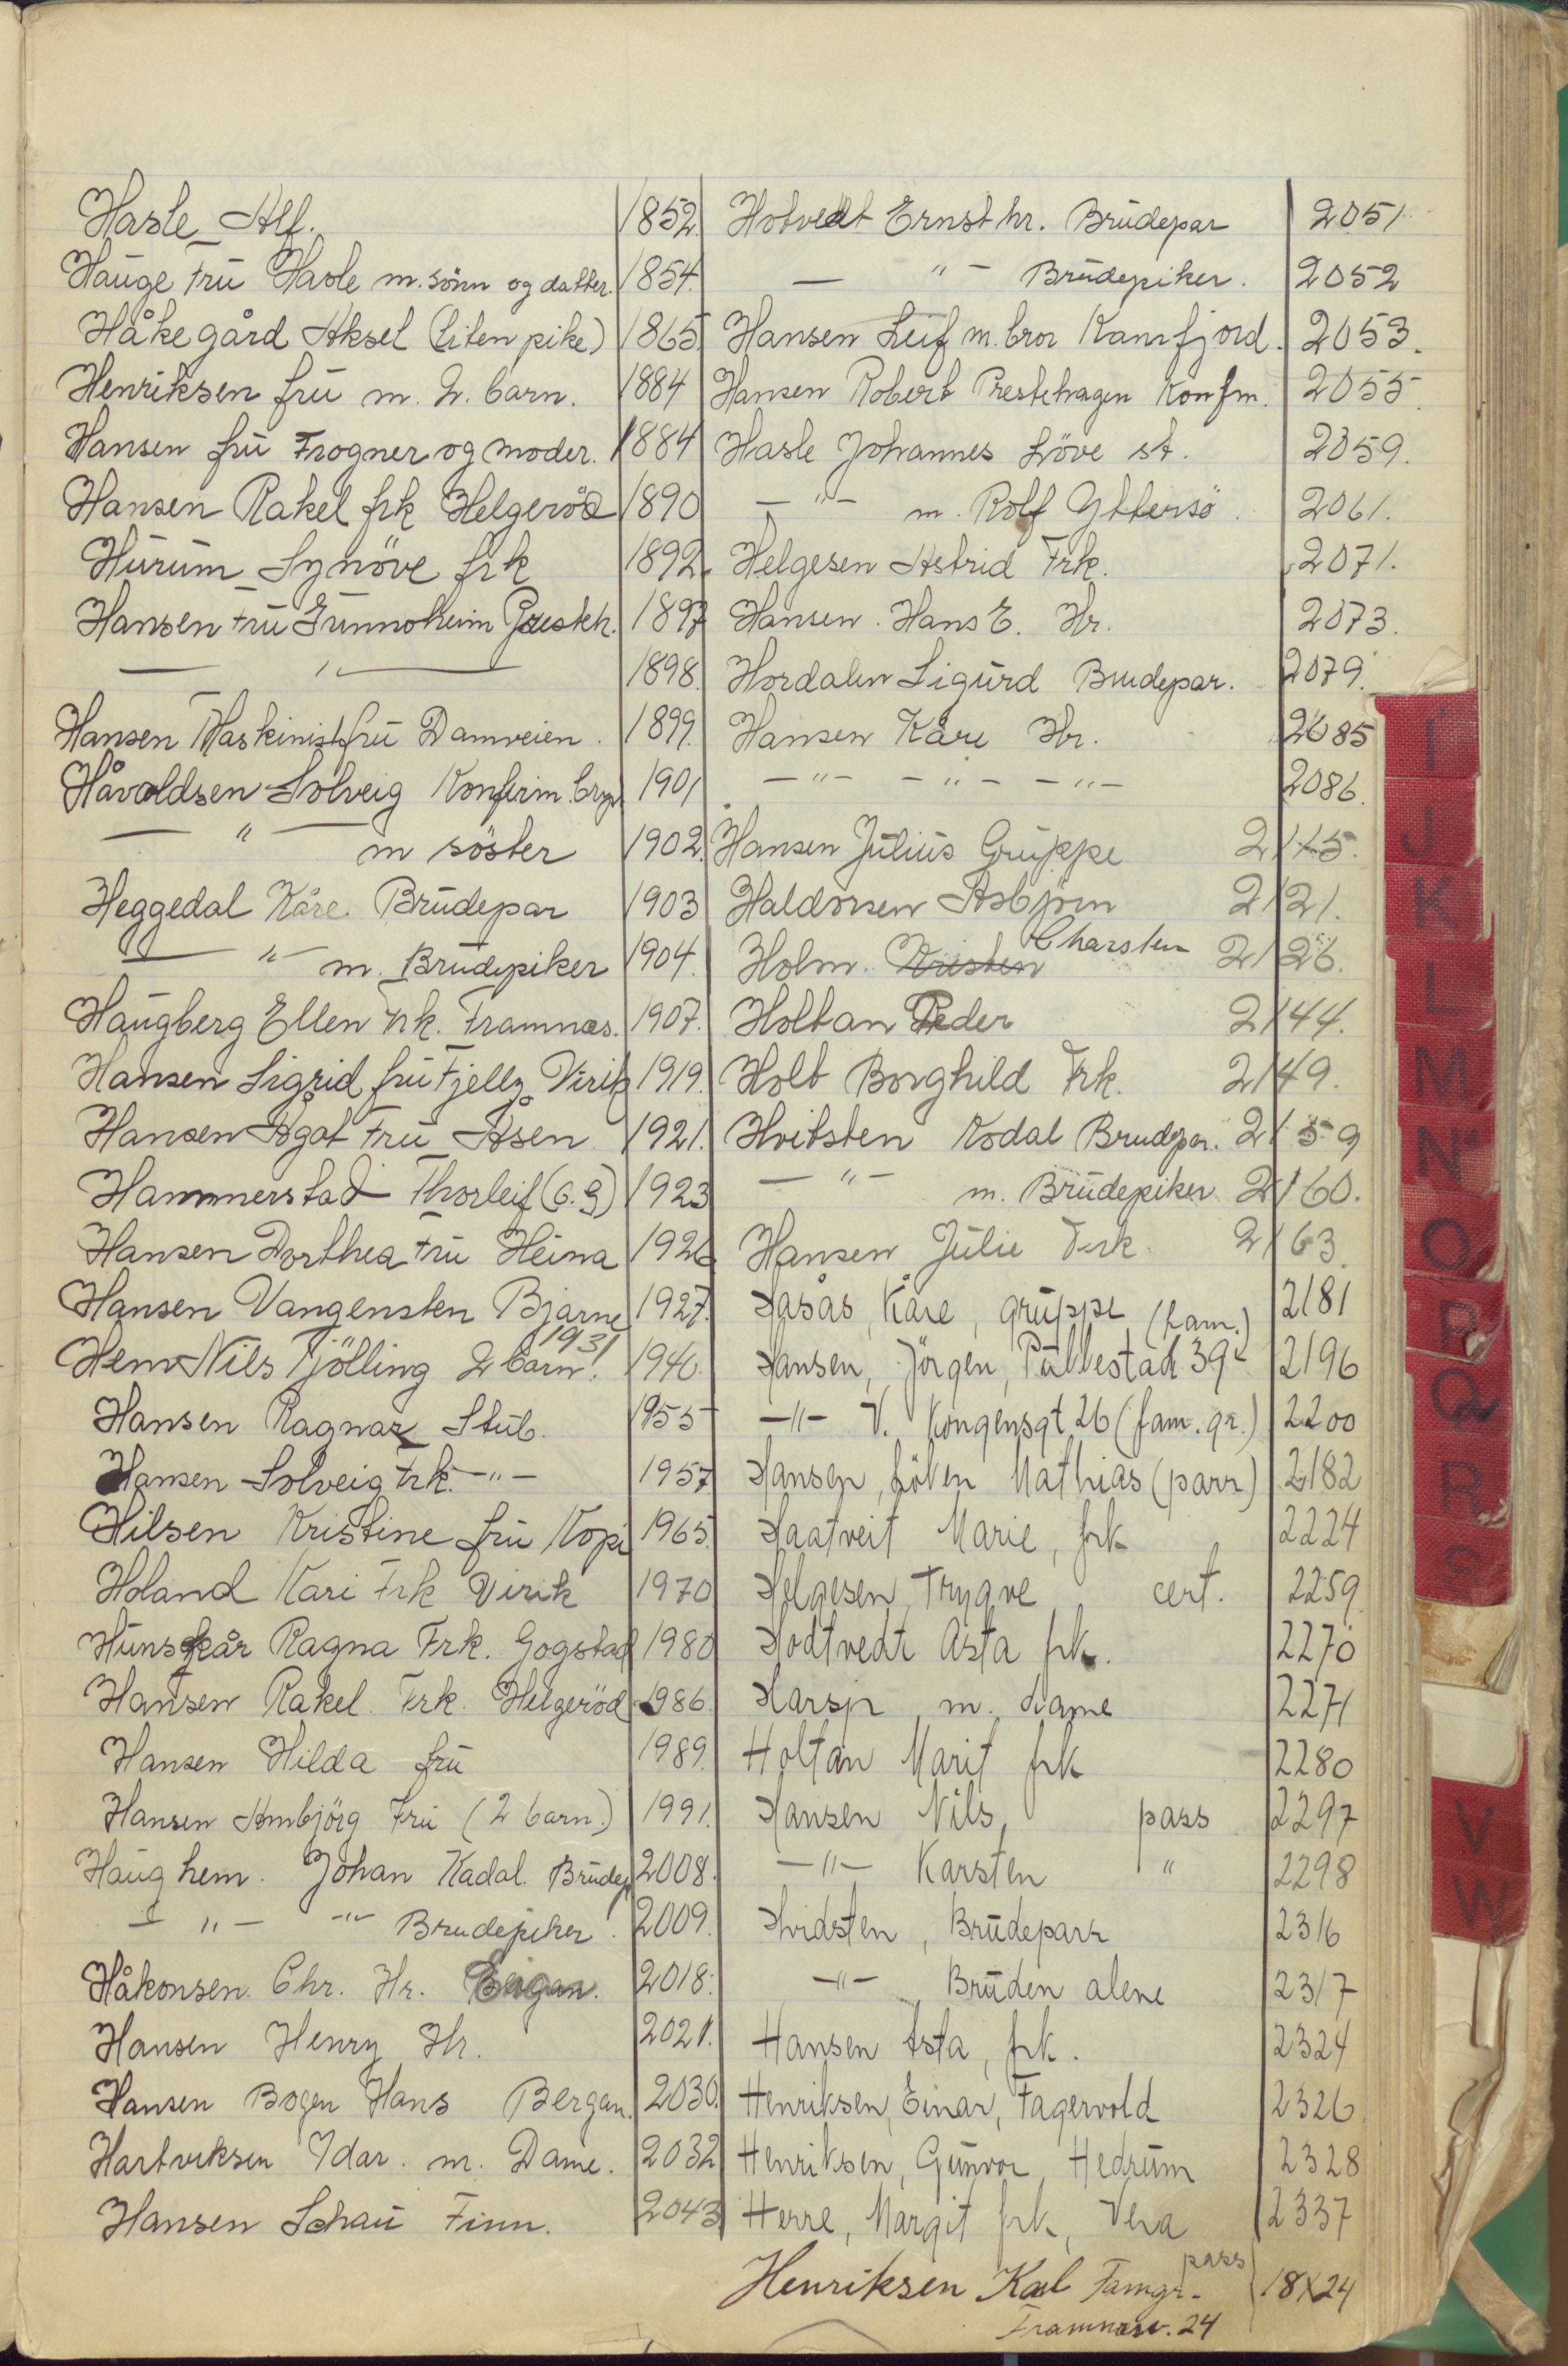 Hasle Alf. 1852.
Hauge Fru Hasle m. sönn og datter. 1854.
Håkegård Aksel (liten pike) 1865.
Henriksen fru m. 2. barn. 1884
Hansen fru Frogner og moder. 1884
Hansen Rakel frk Helgeröd 1890
Hurum Synöve frk 1892.
Hansen Fru Presteh. 1897
— " — 1898.
Hansen Maskinist fru Damveien. 1899.
Håvaldsen Solveig Konfirm. 1901
— " — m söster 1902.
Heggedal Kåre Brudepar 1903
— " — m. Brudepiker 1904.
Haugberg Ellen Frk. Framnæs. 1907.
Hansen Sigrid fru Fjellg. Virik 1919.
Hansen Ågot Fru Åsen 1921.
Hammerstad Thorleif (6. g) 1923
Hansen Dorthea Fru Heima 1926
Hansen Vangensten Bjarne 1927.
1931
Hem Nils Tjölling 2 barn. 1940.
Hansen Ragnar Stub. 1955
Hansen Solveig Frk. — " — 1957
Hilsen Kristine fru Kopi 1965.
Holand Kari Frk Virik 1970
Hunskår Ragna Frk. Gogstad 1980
Hansen Rakel Frk. Helgeröd 1986.
Hansen Hilda fru 1989.
Hansen Ambjörg Fru (2 barn.) 1991.
Haughem. Johan Kadal. Brudep 2008.
— " — — " — Brudepiker. 2009.
Håkonsen Chr. Hr. 2018.
Hansen Henry Hr. 2021.
Hansen Bogen Hans Bergan. 2030.
Hartviksen Idar. m. Dame. 2032
Hansen Schau Finn. 2043
Hotvedt Ernst hr. Brudepar 2051
— " — Brudepiker. 2052
Hansen Leif m. bror Kamfjord. 2053.
Hansen Robert Prestehagen Konfm. 2055.
Hasle Johannes Löve st. 2059.
— " — m. Rolf Yttersö. 2061.
Helgesen Astrid Frk. 2071.
Hansen. Hans E. Hr. 2073.
Hordalen Sigurd Brudepar. 2079.
Hansen Kåre Hr. 2085
— " — — " — — " — 2086.
Hansen Julius Gruppe 2115.
Haldorsen Asbjörn 2121.
Holm Kristen Charsten 2126.
Holtan Peder 2144.
Holt Borghild Frk. 2149.
Hvitsten Kodal Brudepar. 2159
— " — m. Brudepiker 2160.
Hansen Julie Frk. 2163.
Hasås, Kåre, gruppe (fam.) 2181
Hansen, Jörgen, Pukkestad 39 2196
— " — V. Kongensgt 26 (fam. gr.) 2200
Hansen, Löken Mathias (parr) 2182
Haatveit Marie, frk 2224
Helgesen, Trygve cert. 2259
Hodtvedt Asta frk. 2270
m. dame 2271
Holtan Marit frk 2280
Hansen Nils, pass 2297
— " — Karsten " 2298
Hvidsten, Brudeparr 2316
— " — Bruden alene 2317
Hansen Asta, frk. 2324
Henriksen, Einar, Fagervold 2326
Henriksen, Gunvor, Hedrum 2328
Herre, Margit frk, Vera 2337
pass
Henriksen Karl Famgr. 18x24
Framnæsv. 24
I
J
K
L
M
N
O
P
Q
R
S
V
W